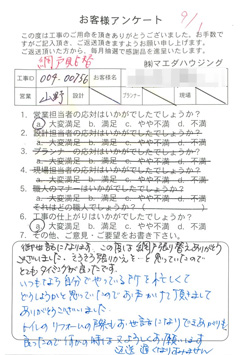 お客様アンケート
9/1
この度は工事のご用命を頂きありがとうございました。お手数で
すがご記入頂き、ご返送頂きますようお願い申し上げます。
ご返送頂いた方から、毎月抽選で感謝品を進呈いたします。
網戸張替
㈱マエダハウジング
工事ID
009-00756
お客様名
営業
山野
設計
プランナー
現場
1. 営業担当者の応対はいかがでしたでしょうか?
a. 大変満足 b. 満足 c. やや不満 d. 不満
2. 設計担当者の応対はいかがでしたでしょうか?
a. 大変満足 b. 満足 c. やや不満 d. 不満
3. プランナーの応対はいかがでしたでしょうか?
a. 大変満足 b. 満足 c. やや不満 d. 不満
4. 現場担当者の応対はいかがでしたでしょうか?
a. 大変満足 b. 満足 c. やや不満 d. 不満
5. 職人のマナーはいかがでしたでしょうか?
a. 大変満足 b. 満足 c. やや不満 d. 不満
それはどの職人でしたでしょうか?( )
6. 工事の仕上がりはいかがでしたでしょうか?
a. 大変満足 b. 満足 c. やや不満 d. 不満
7. その他、ご意見、ご要望をお書き下さい。
お世話になります。この度は網戸張り替えありがとう
ございました。そろそろ張りかえを…と思っていたので
とてもタイミングが良かったです。
いつもなら自分でやっているけど忙しくて
どうしようかと思っていたのでお声かけて頂きまして
ありがとうございました
トイレのリフォームの際もお世話になりとてもありがたく
思ったので何かの時はまたよろしくお願いします
返送遅くなりすみません